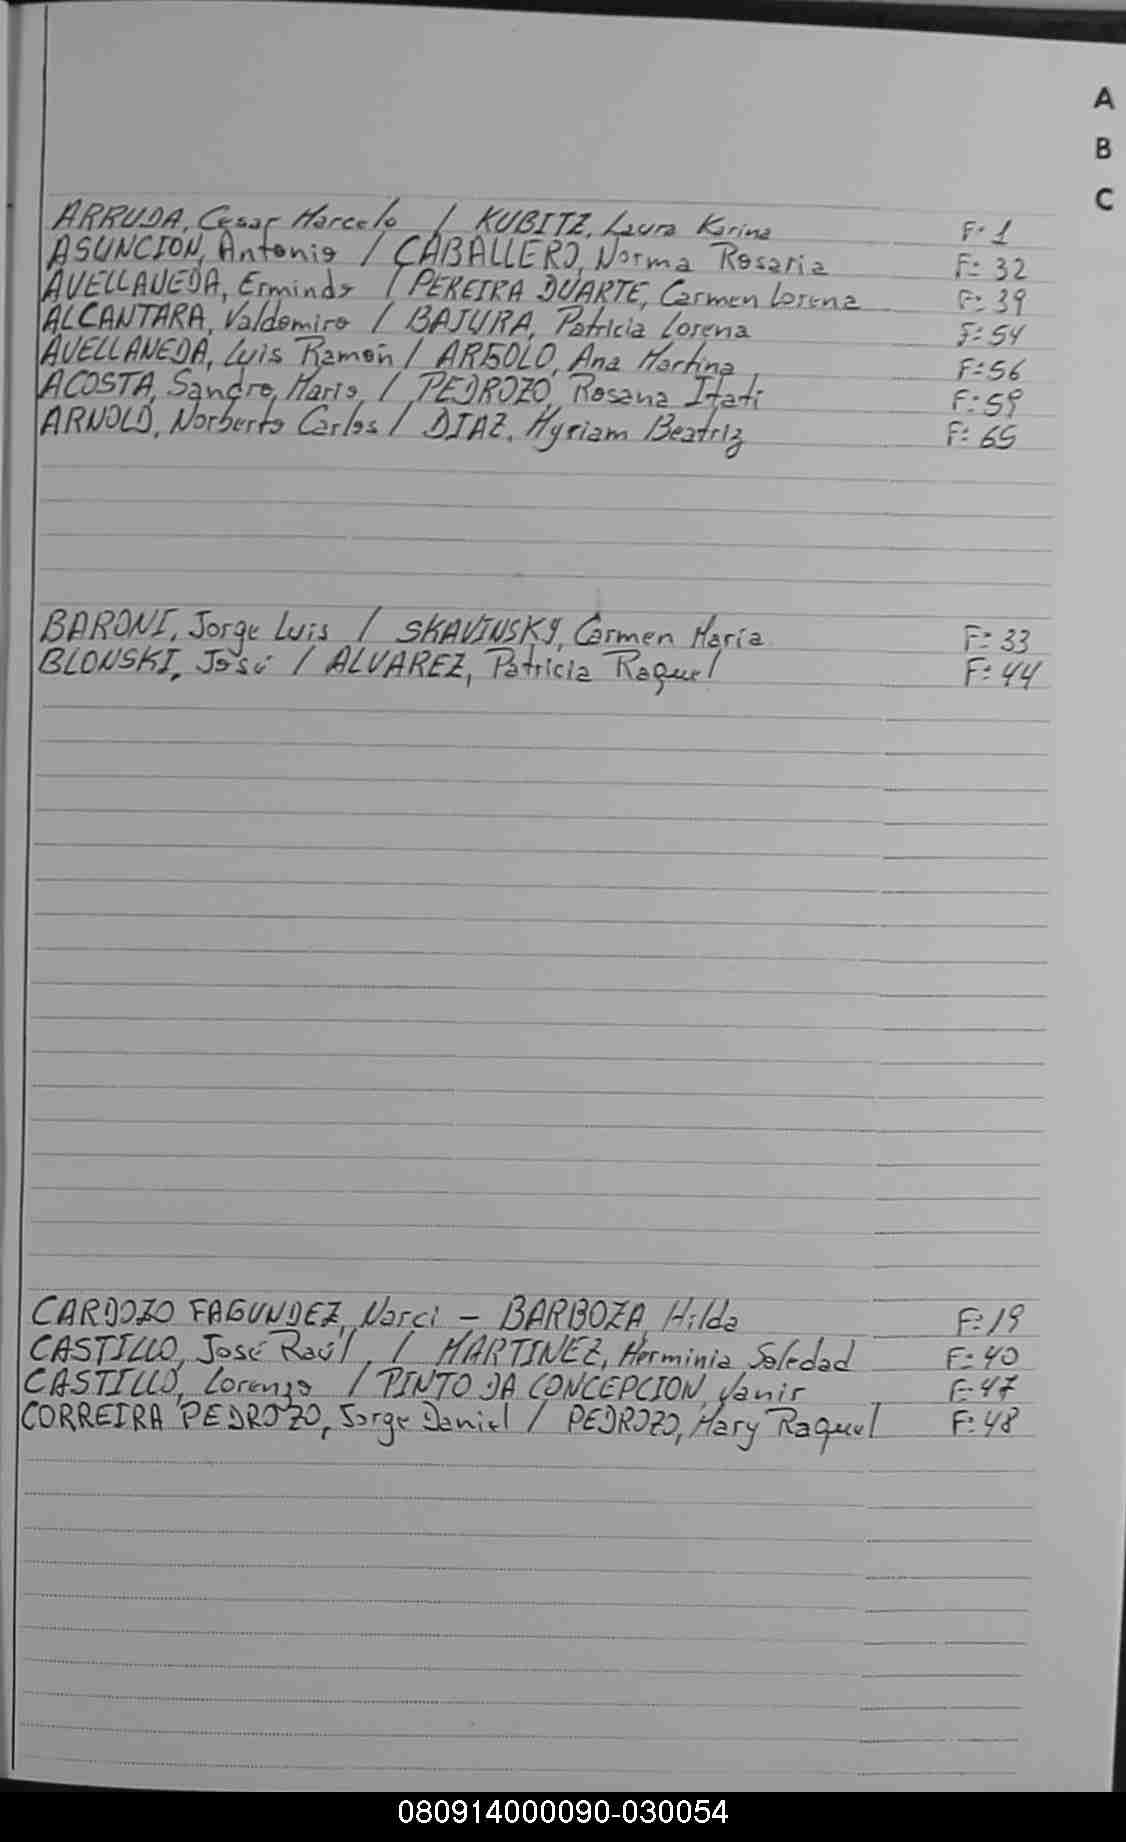 A
B
C
ARRUDA, Cesar Marcelo / KUBITZ, Laura Karina F: 1
ASUNCION, Antonio / CABALLERO, Norma Rosaria F: 32
AVELLAVEDA, Ermindo / PEREIRA DUARTE, Carmen Lorena F: 39
ALCANTARA, Valdomiro / BAJURA, Patricia Lorena F: 54
AVELLANEDA, Luis Ramón / ARGOLO, Ana Martina F: 56
ACOSTA, Sandro, Mario, / PEDROZO, Rosana Itati F: 59
ARNOLD, Norberto Carlos / DIAZ, Myriam Beatriz F: 65
BARONI, Jorge Luis / SKAVINSKY, Carmen Maria F: 33
BLONSKI, José / ALVAREZ, Patricia Raquel F: 44
CARDOZO FAGUNDEZ, Narci - BARBOZA, Hilda F: 19
CASTILLO, José Raúl, / MARTINEZ, Herminia Soledad F: 40
CASTILLO, Lorenzo / PINTO DA CONCEPCION, Vanir F: 47
CORREIRA PEDROZO, Jorge Daniel / PEDROZO, Mary Raquel F: 48
080914000090-030054